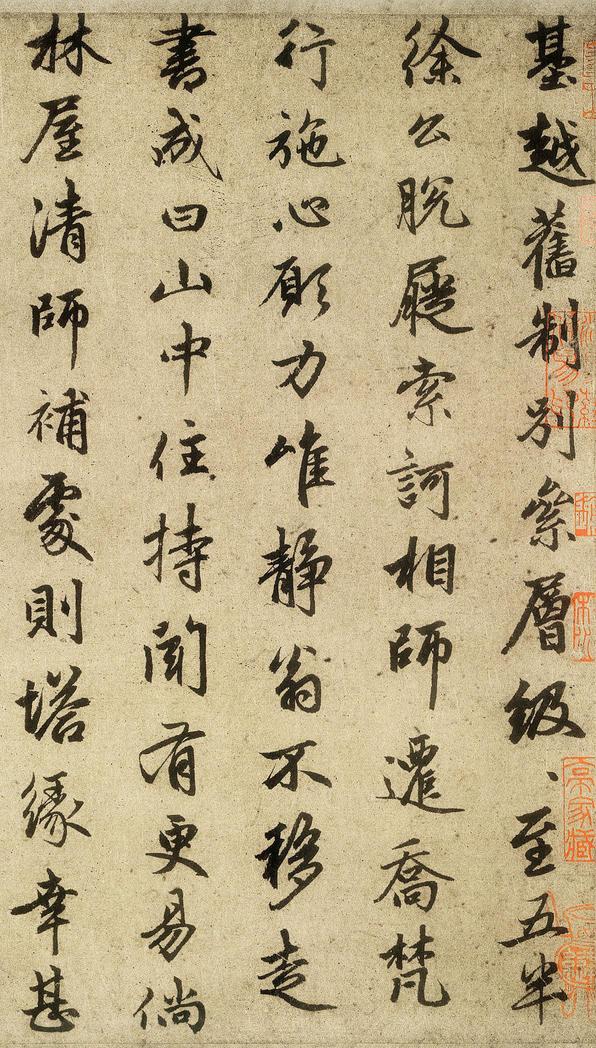 基越舊制別參層級級至五半
徐公脫屣索訶相師遷喬梵
行施心願力唯靜翁不移走
書成曰山中住持聞有更易倘
林屋清師補處則塔緣幸甚